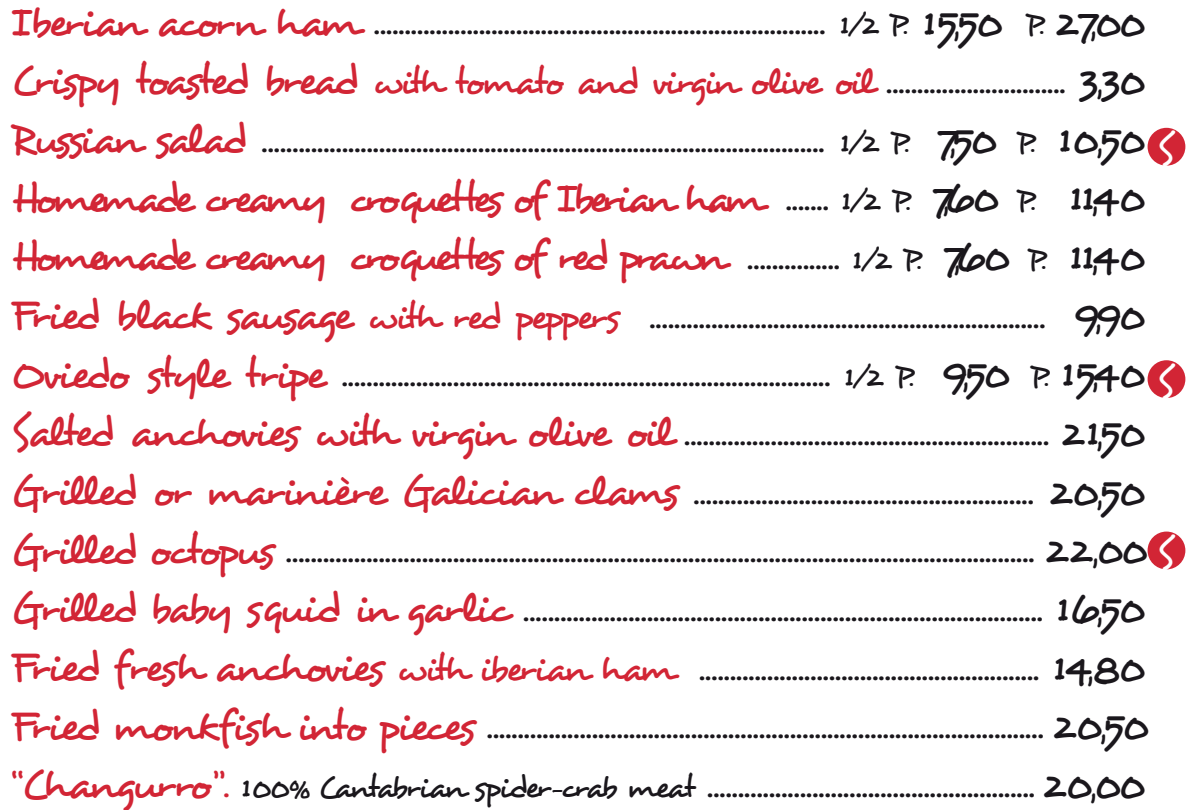 Iberian acorn ham ........ 1/2 P. 15,50 P. 27,00
Crispy toasted bread with tomato and virgin olive oil ........ 3,30
Russian salad ........ 1/2 P. 7,50 P. 10,50
Homemade creamy croquettes of Iberian ham ........ 1/2 P. 7,60 P. 11,40
Homemade creamy croquettes of red prawn ........ 1/2 P. 7,60 P. 11,40
Fried black sausage with red peppers ........ 9,90
Oviedo style tripe ........ 1/2 P. 9,50 P. 15,40
Salted anchovies with virgin olive oil ........ 21,50
Grilled or marinière Galician clams ........ 20,50
Grilled octopus ........ 22,00
Grilled baby squid in garlic ........ 16,50
Fried fresh anchovies with iberian ham ........ 14,80
Fried monkfish into pieces ........ 20,50
"Changurro". 100% Cantabrian spider-crab meat ........ 20,00